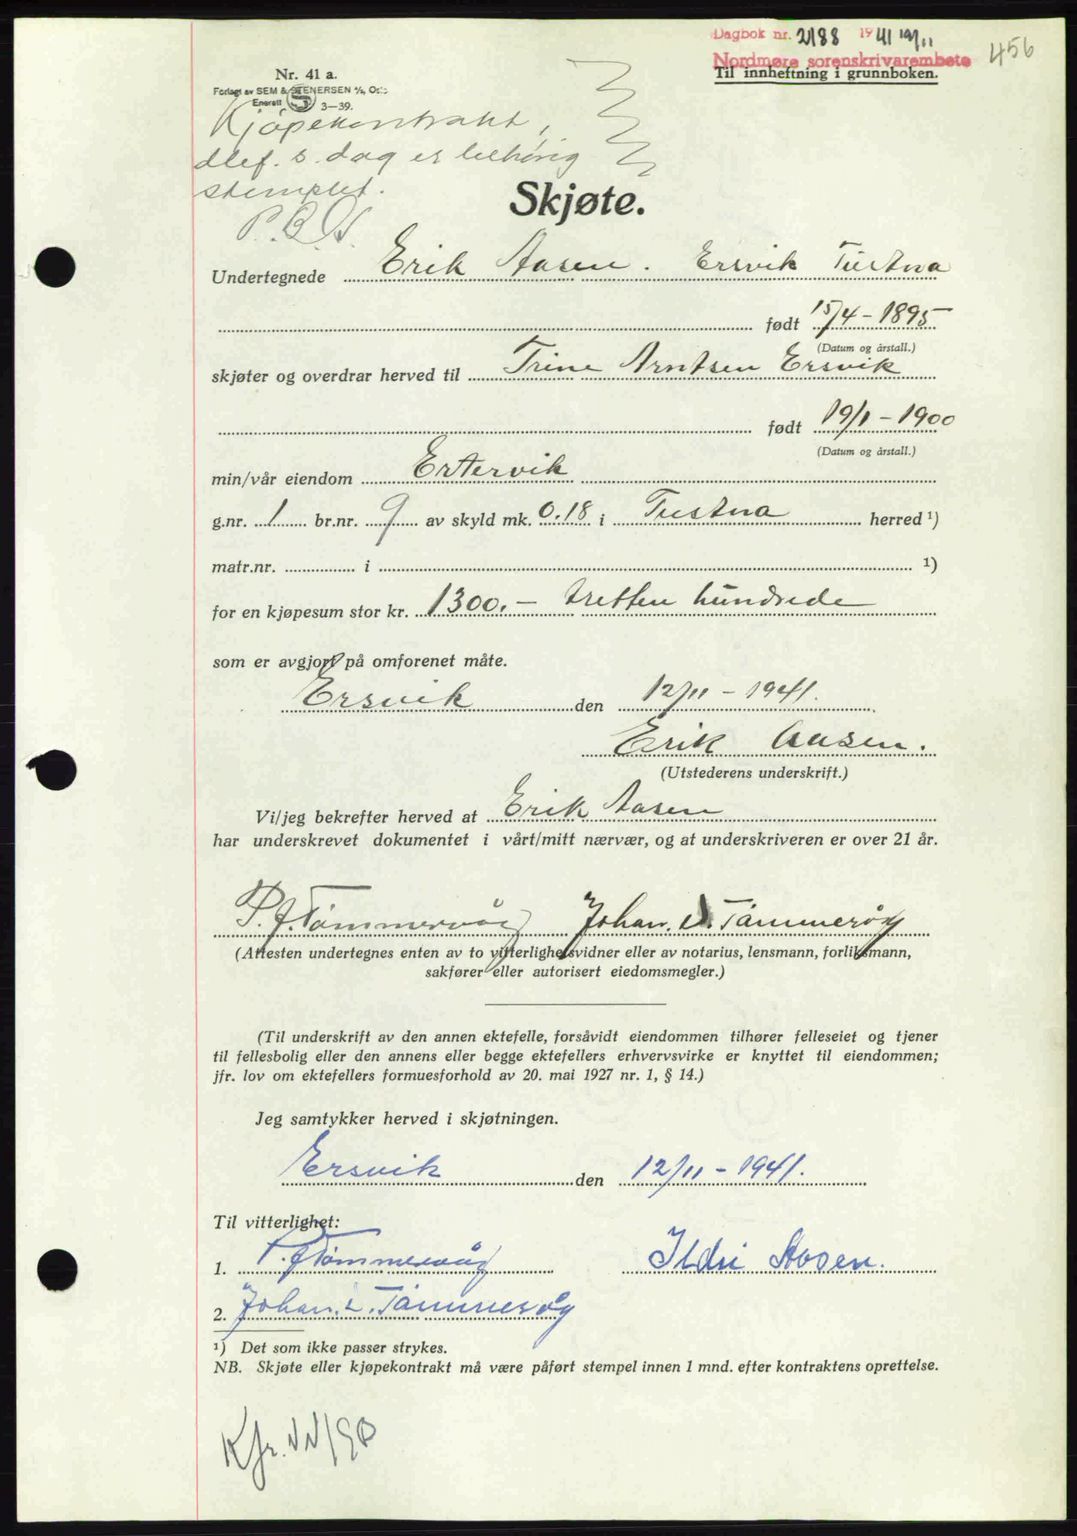 Dagbok nr. 2188 1941 19/11
Nordmøre sorenskrivarembete
456
Til innheftning i grunnboken.
Nr. 41 a.
Forlagt av SEM & STENERSEN A/S, Oslo
Enerett S 3-39.
Kjøpekontrakt,
d. s. dag er behørig
stemplet.
Skjøte.
Undertegnede Erik Aasen. Ersvik Tustna
født 15/4-1895
(Datum og årstall.)
skjøter og overdrar herved til Trine Arntsen Ersvik
født 19/1-1900
(Datum og årstall.)
min/vår eiendom Ertervik
g.nr. 1 br.nr. 9 av skyld mk. 0.18 i Tustna herred ¹)
matr.nr. i ¹)
for en kjøpesum stor kr. 1300.- tretten hundrede
som er avgjort på omforenet måte.
Ersvik den 12/11-1941.
Erik Aasen.
(Utstederens underskrift.)
Vi/jeg bekrefter herved at Erik Aasen
har underskrevet dokumentet i vårt/mitt nærvær, og at underskriveren er over 21 år.
P. J. Tømmervåg Johan. L. Tømmervåg
(Attesten undertegnes enten av to vitterlighetsvidner eller av notarius, lensmann, forliksmann,
sakfører eller autorisert eiedomsmegler.)
(Til underskrift av den annen ektefelle, forsåvidt eiendommen tilhører felleseiet og tjener
til fellesbolig eller den annens eller begge ektefellers erhvervsvirke er knyttet til eiendommen;
jfr. lov om ektefellers formuesforhold av 20. mai 1927 nr. 1, § 14.)
Jeg samtykker herved i skjøtningen.
Ersvik den 12/11-1941.
Til vitterlighet:
1. P. J. Tømmervåg Ildri Aasen.
2. Johan. L. Tømmervåg
¹) Det som ikke passer strykes.
NB. Skjøte eller kjøpekontrakt må være påført stempel innen 1 mnd. efter kontraktens oprettelse.